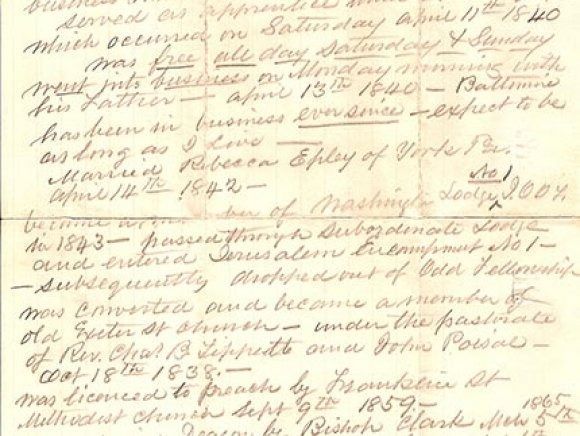 business
served as apprentice
which occurred on Saturday april 11th 1840
was free all day Saturday & Sunday
went into business on Monday morning with
his Father — april 13th 1840 — Baltimore
has been in business ever since — expect to be
as long as I live —
Married Rebecca Epley of York Pa. —
april 14th 1842 —
No 1
became a member of Washington Lodge I.O.O.F.
in 1843 — passed through Subordinate Lodge
and entered Jerusalem Encampment No 1 —
— subsequently dropped out of Odd Fellowship
was converted and became a member of
old Exeter St Church — under the pastorate
of Rev. Chas B. Tippette and John
Oct 18th 1838. —
was licenced to preach by Franklin St
Methodist Church Sept 9th 1859 —
1865
Deacon by Bishop Clark Mch 5th